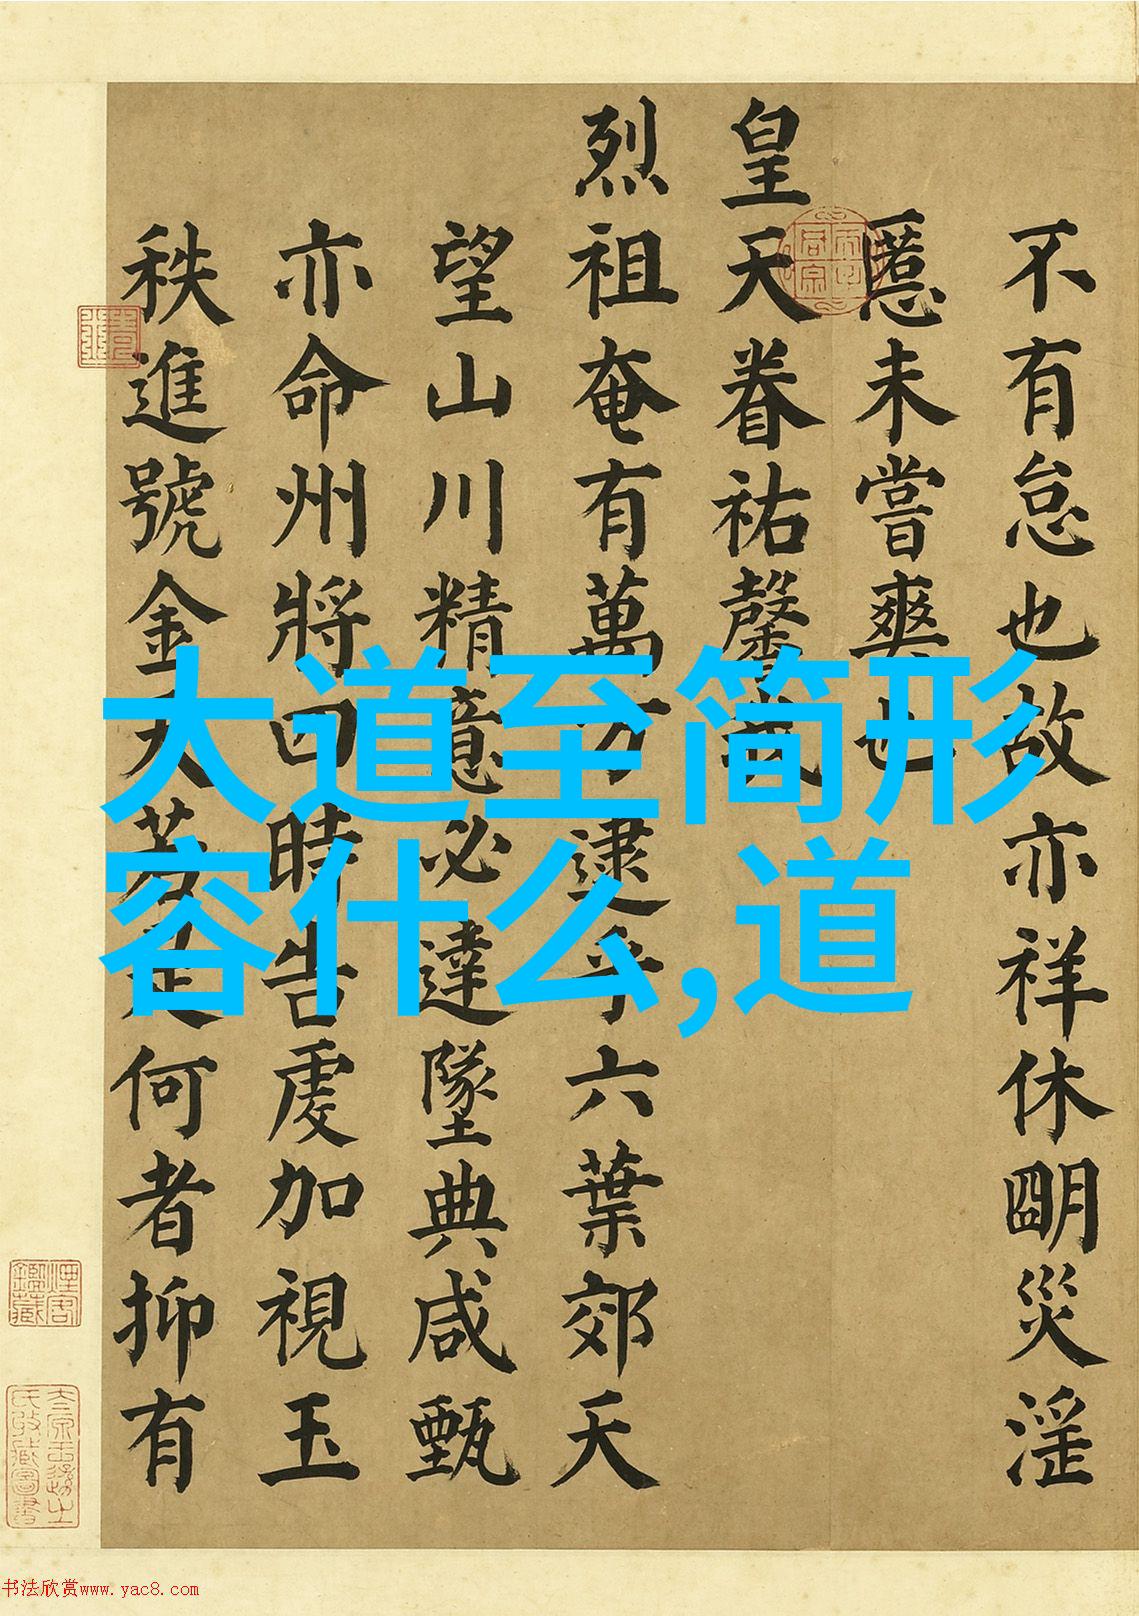 不有怠也故亦祥休朙災淫
慝未嘗爽也
皇天眷祐馨
烈祖奄有萬方逮乎六葉郊天
望山川精意必達墜典咸甄
亦命州將曰時告虔加視玉
秩進號金天何者抑有
大道至简形
容什么,道
书法欣赏www.yac8.com